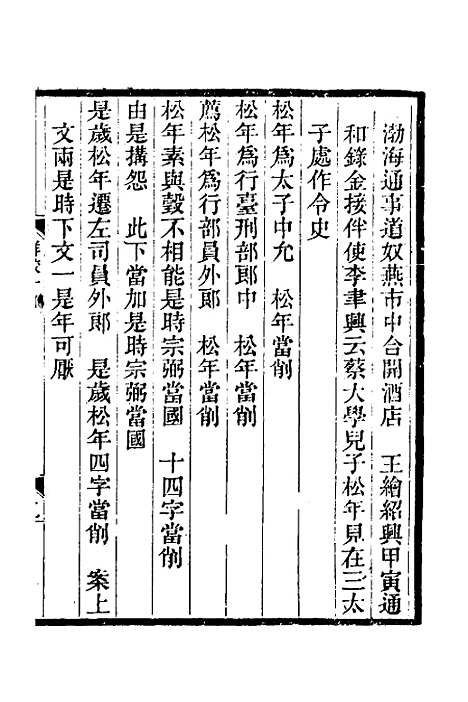 渤海通事道奴燕市中合開酒店　王繪紹興甲寅通
和錄金接伴使李聿興云蔡大學兒子松年見在三太
子處作令史
松年爲太子中允　松年當削
松年爲行臺刑部郎中　松年當削
薦松年爲行部員外郎　松年當削
松年素與瑴不相能是時宗弼當國　十四字當削
由是搆怨　此下當加是時宗弼當國
是歲松年遷左司員外郎　是歲松年四字當削　案上
文兩是時下文一是年可厭